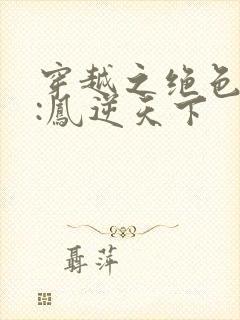 穿越之绝色
:凤逆天下
聂萍